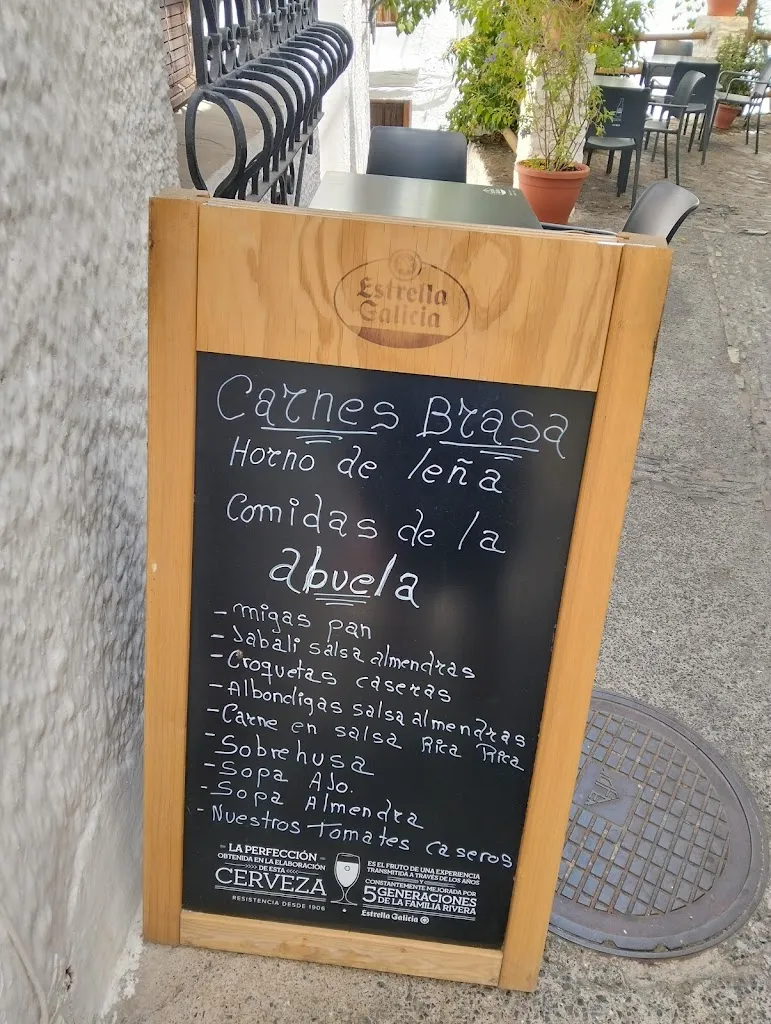 Estrella
Galicia
Carnes Brasa
Horno de leña
Comidas de la
abuela
- migas pan
- Jabali salsa almendras
- Croquetas caseras
- Albondigas salsa almendras
- Carne en salsa Rica Rica
- Sobrehusa
- Sopa AJo.
- Sopa Almendra
- Nuestros Tomates caseros
LA PERFECCIÓN
OBTENIDA EN LA ELABORACIÓN
DE ESTA
CERVEZA
RESISTENCIA DESDE 1906
ES EL FRUTO DE UNA EXPERIENCIA
TRANSMITIDA A TRAVÉS DE LOS AÑOS
Y
CONSTANTEMENTE MEJORADA POR
5 GENERACIONES
DE LA FAMILIA RIVERA
Estrella Galicia